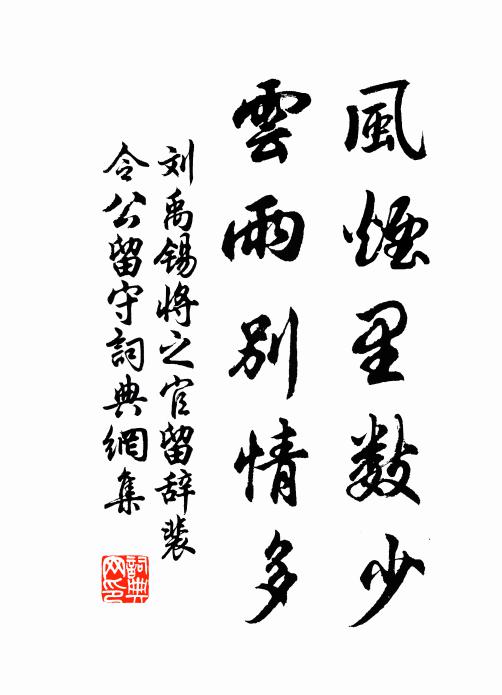 風煙里数少
雲雨別情多
刘禹锡将之官留辞裴
令公留守詞典網集
詞典
网印